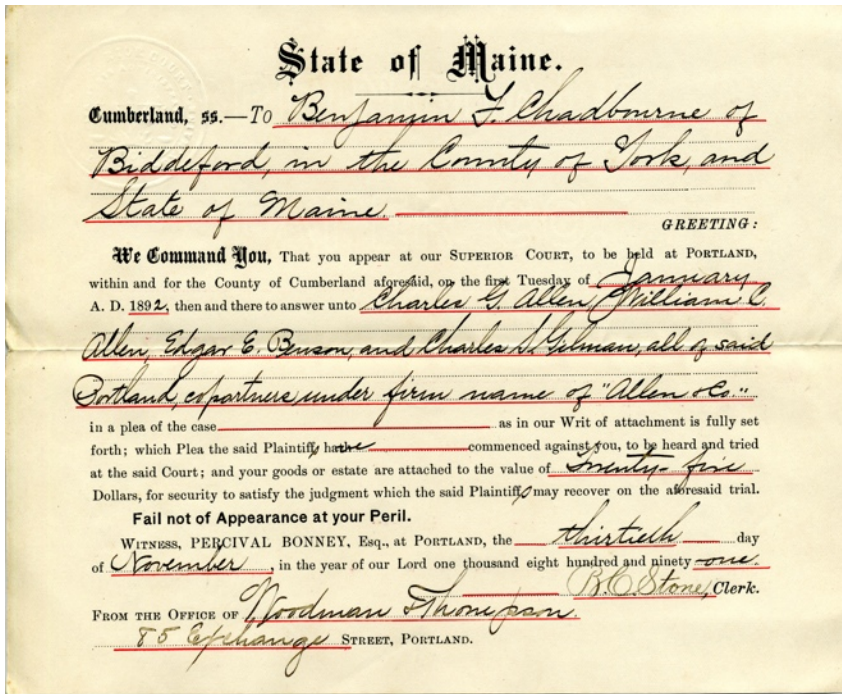 State of Maine.
Cumberland, ss.—To Benjamin F. Chadbourne of
Biddeford, in the County of York, and
State of Maine.
GREETING:
We Command You, That you appear at our SUPERIOR COURT, to be held at PORTLAND,
within and for the County of Cumberland aforesaid, on the first Tuesday of January
A. D. 1892, then and there to answer unto Charles G. Allen, William C.
Allen, Edgar E. Benson, and Charles S. Gilman, all of said
Portland, copartners under firm name of "Allen & Co."
in a plea of the case as in our Writ of attachment is fully set
forth; which Plea the said Plaintiffs have commenced against you, to be heard and tried
at the said Court; and your goods or estate are attached to the value of Twenty-five
Dollars, for security to satisfy the judgment which the said Plaintiffs may recover on the aforesaid trial.
Fail not of Appearance at your Peril.
WITNESS, PERCIVAL BONNEY, Esq., at PORTLAND, the thirtieth day
of November, in the year of our Lord one thousand eight hundred and ninety-one.
B.C. Stone, Clerk.
FROM THE OFFICE OF Woodman & Thompson.
85 Exchange STREET, PORTLAND.